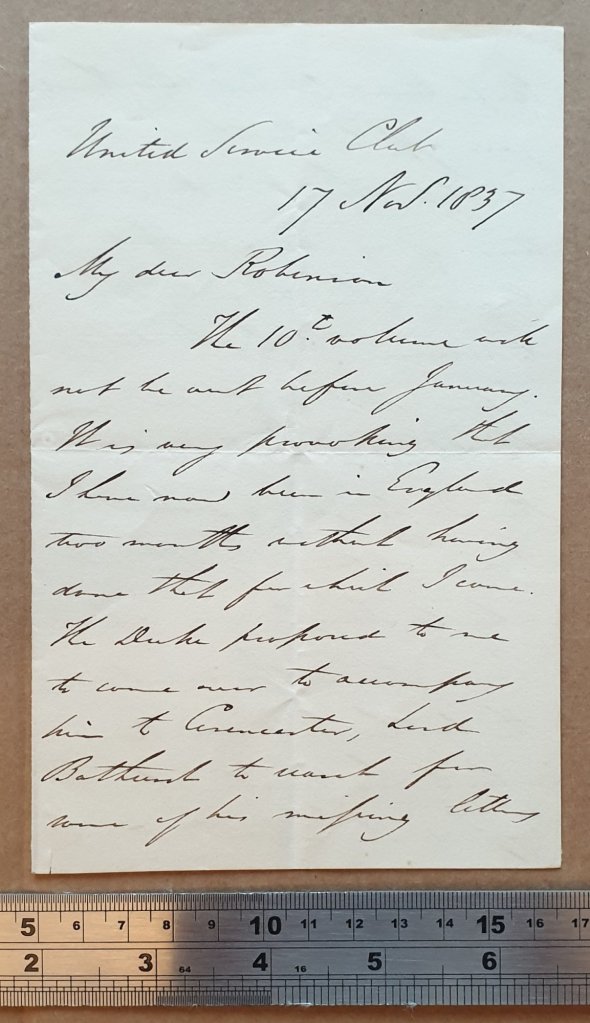 United Service Club
17 Nov. 1837
My dear Robinson
The 10.t volume will
not be out before January.
It is very provoking that
I have now been in England
two months without having
done that for which I came.
The Duke proposed to me
to come over to accompany
him to Cirencester, Lord
Bathurst to search for
some of his missing letters
5 6 7 8 9 10 11 12 13 14 15 16 17
2 3 64 4 16 5 6